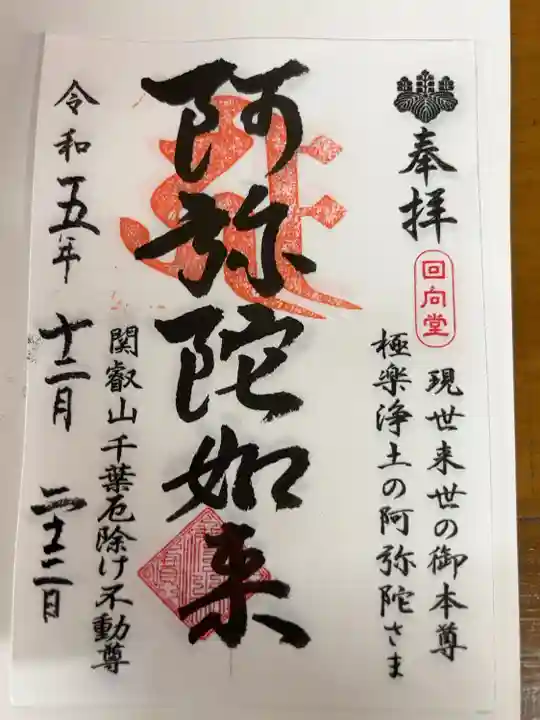 奉拝
回向堂
現世来世の御本尊
極楽浄土の阿弥陀さま
阿弥陀如来
関叡山千葉厄除け不動尊
令和五年十二月二十二日